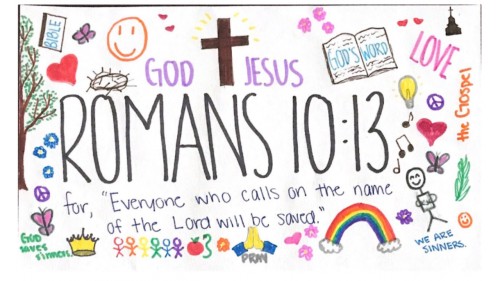 BIBLE
GOD JESUS
GOD'S WORD
LOVE
the Gospel
ROMANS 10:13
for, "Everyone who calls on the name
of the Lord will be saved."
GOD
saves
sinners.
PRAY
WE ARE
SINNERS.